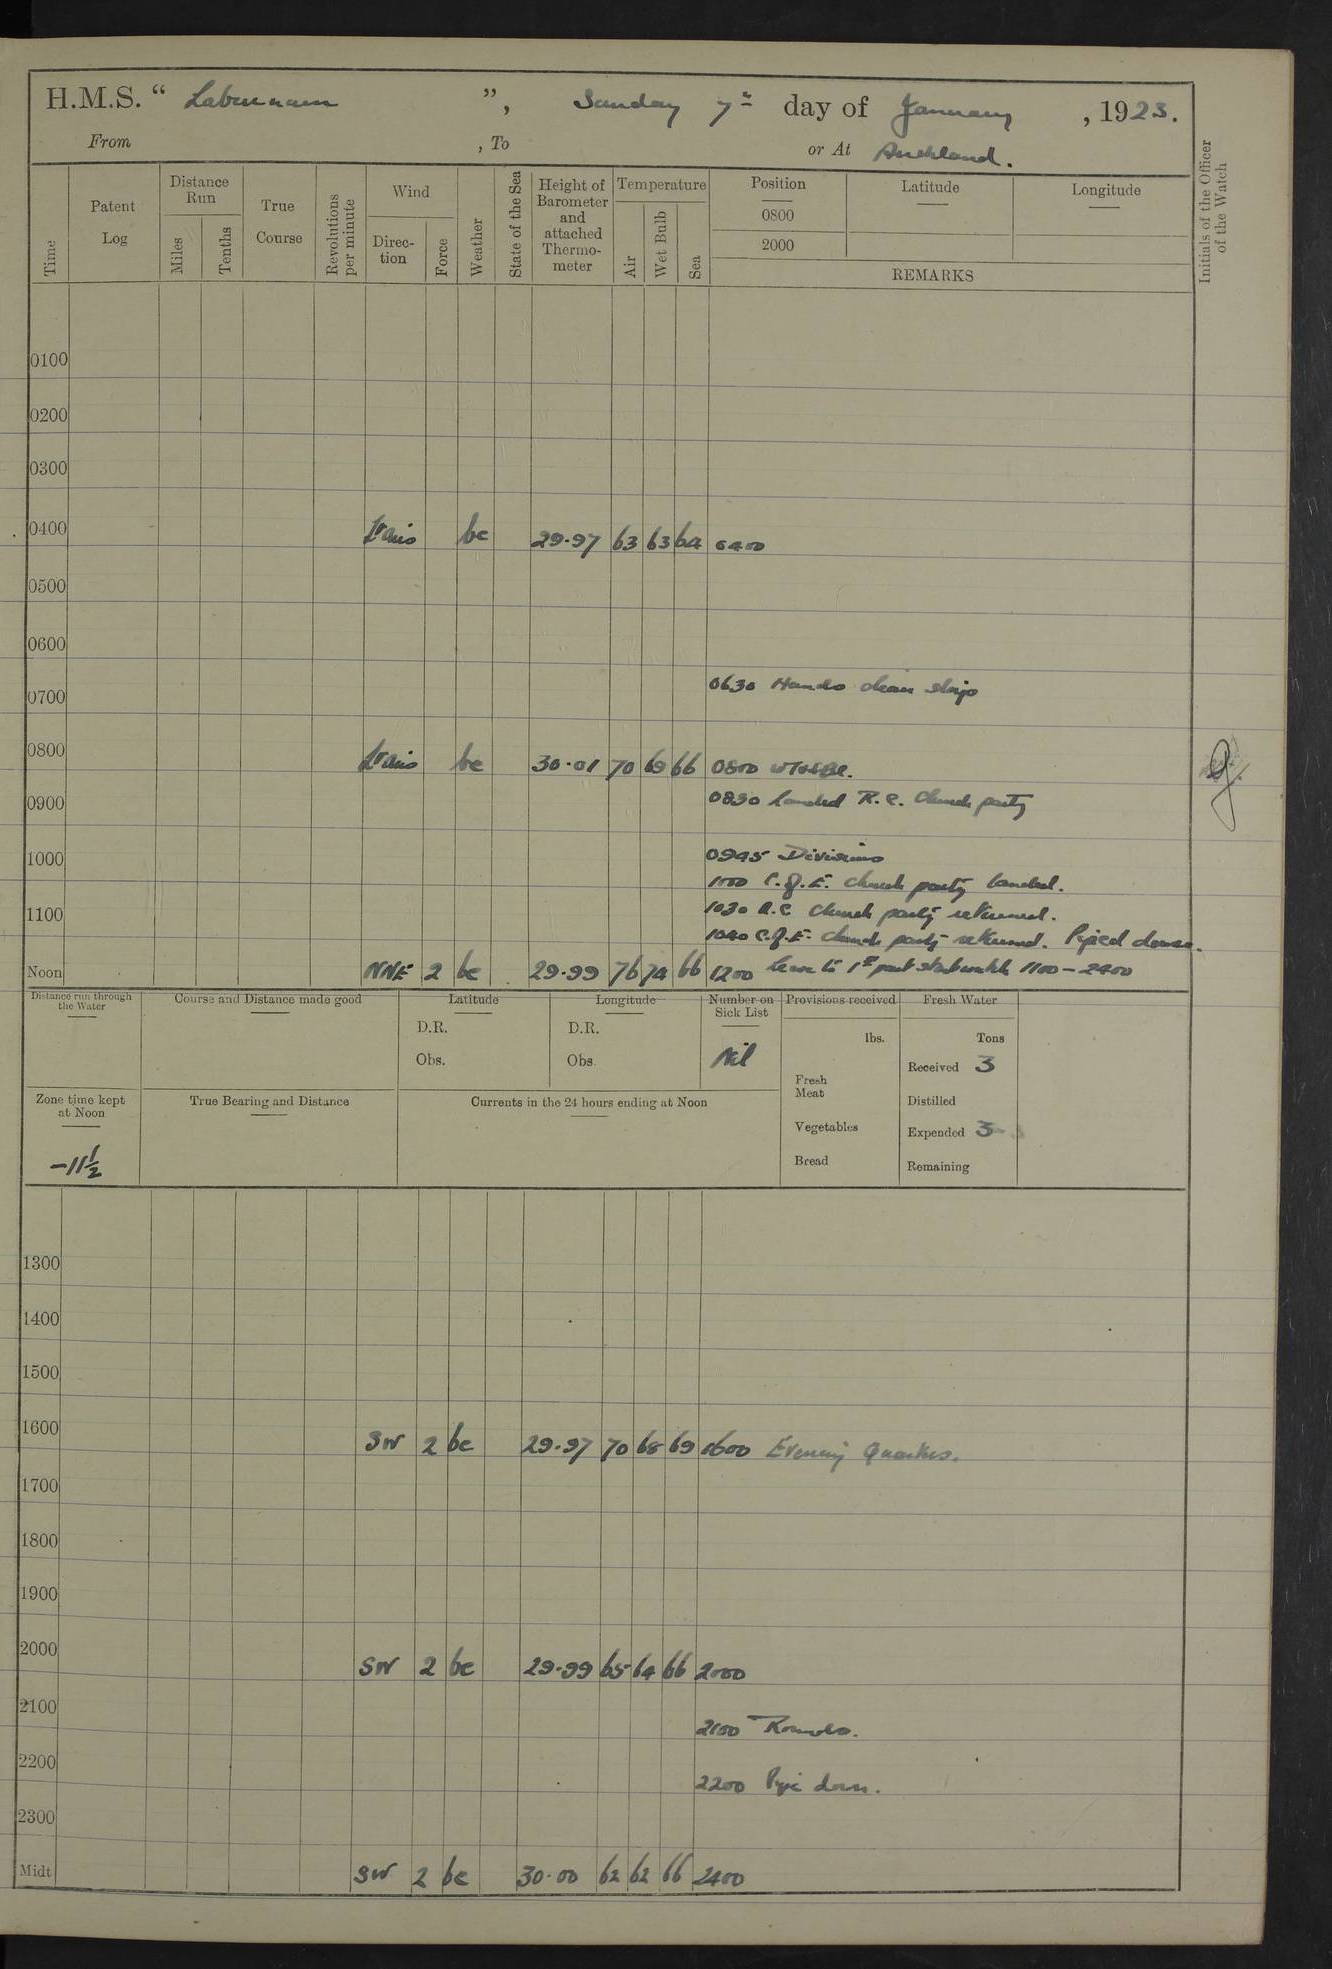 H.M.S. “ Laburnum ”, Sunday 7th day of January, 1923.
From , To or At Auckland.
Time
Patent Log
Distance Run
Miles
Tenths
True Course
Revolutions per minute
Wind
Direction
Force
Weather
State of the Sea
Height of Barometer and attached Thermometer
Temperature
Air
Wet Bulb
Sea
Position
0800
2000
Latitude
Longitude
REMARKS
Initials of the Officer of the Watch
0100
0200
0300
0400 bc 29.97 63 63 64 0400
0500
0600
0630 Hands clean ship
0700
0800 bc 30.01 70 69 66 0800
0830 Landed R.C. Church party
0900
0945 Divisions
1000
1000 C.of.E. church party landed.
1030 R.C. Church party returned.
1100
1040 C.of.E. church party returned. Piped down.
Noon NNE 2 bc 29.99 76 74 66 1200 leave to 1st part stbd watch 1100 – 2400
Distance run through the Water
Course and Distance made good
Latitude
D.R.
Obs.
Longitude
D.R.
Obs.
Number on Sick List
Nil
Provisions received
lbs.
Fresh Meat
Vegetables
Bread
Fresh Water
Tons
Received 3
Distilled
Expended 3
Remaining
Zone time kept at Noon
-11½
True Bearing and Distance
Currents in the 24 hours ending at Noon
1300
1400
1500
1600 SW 2 bc 29.97 70 68 69 1600 Evening Quarters.
1700
1800
1900
2000 SW 2 bc 29.99 65 64 66 2000
2100
2100 Rounds.
2200
2200 Pipe down.
2300
Midt SW 2 bc 30.00 62 62 66 2400